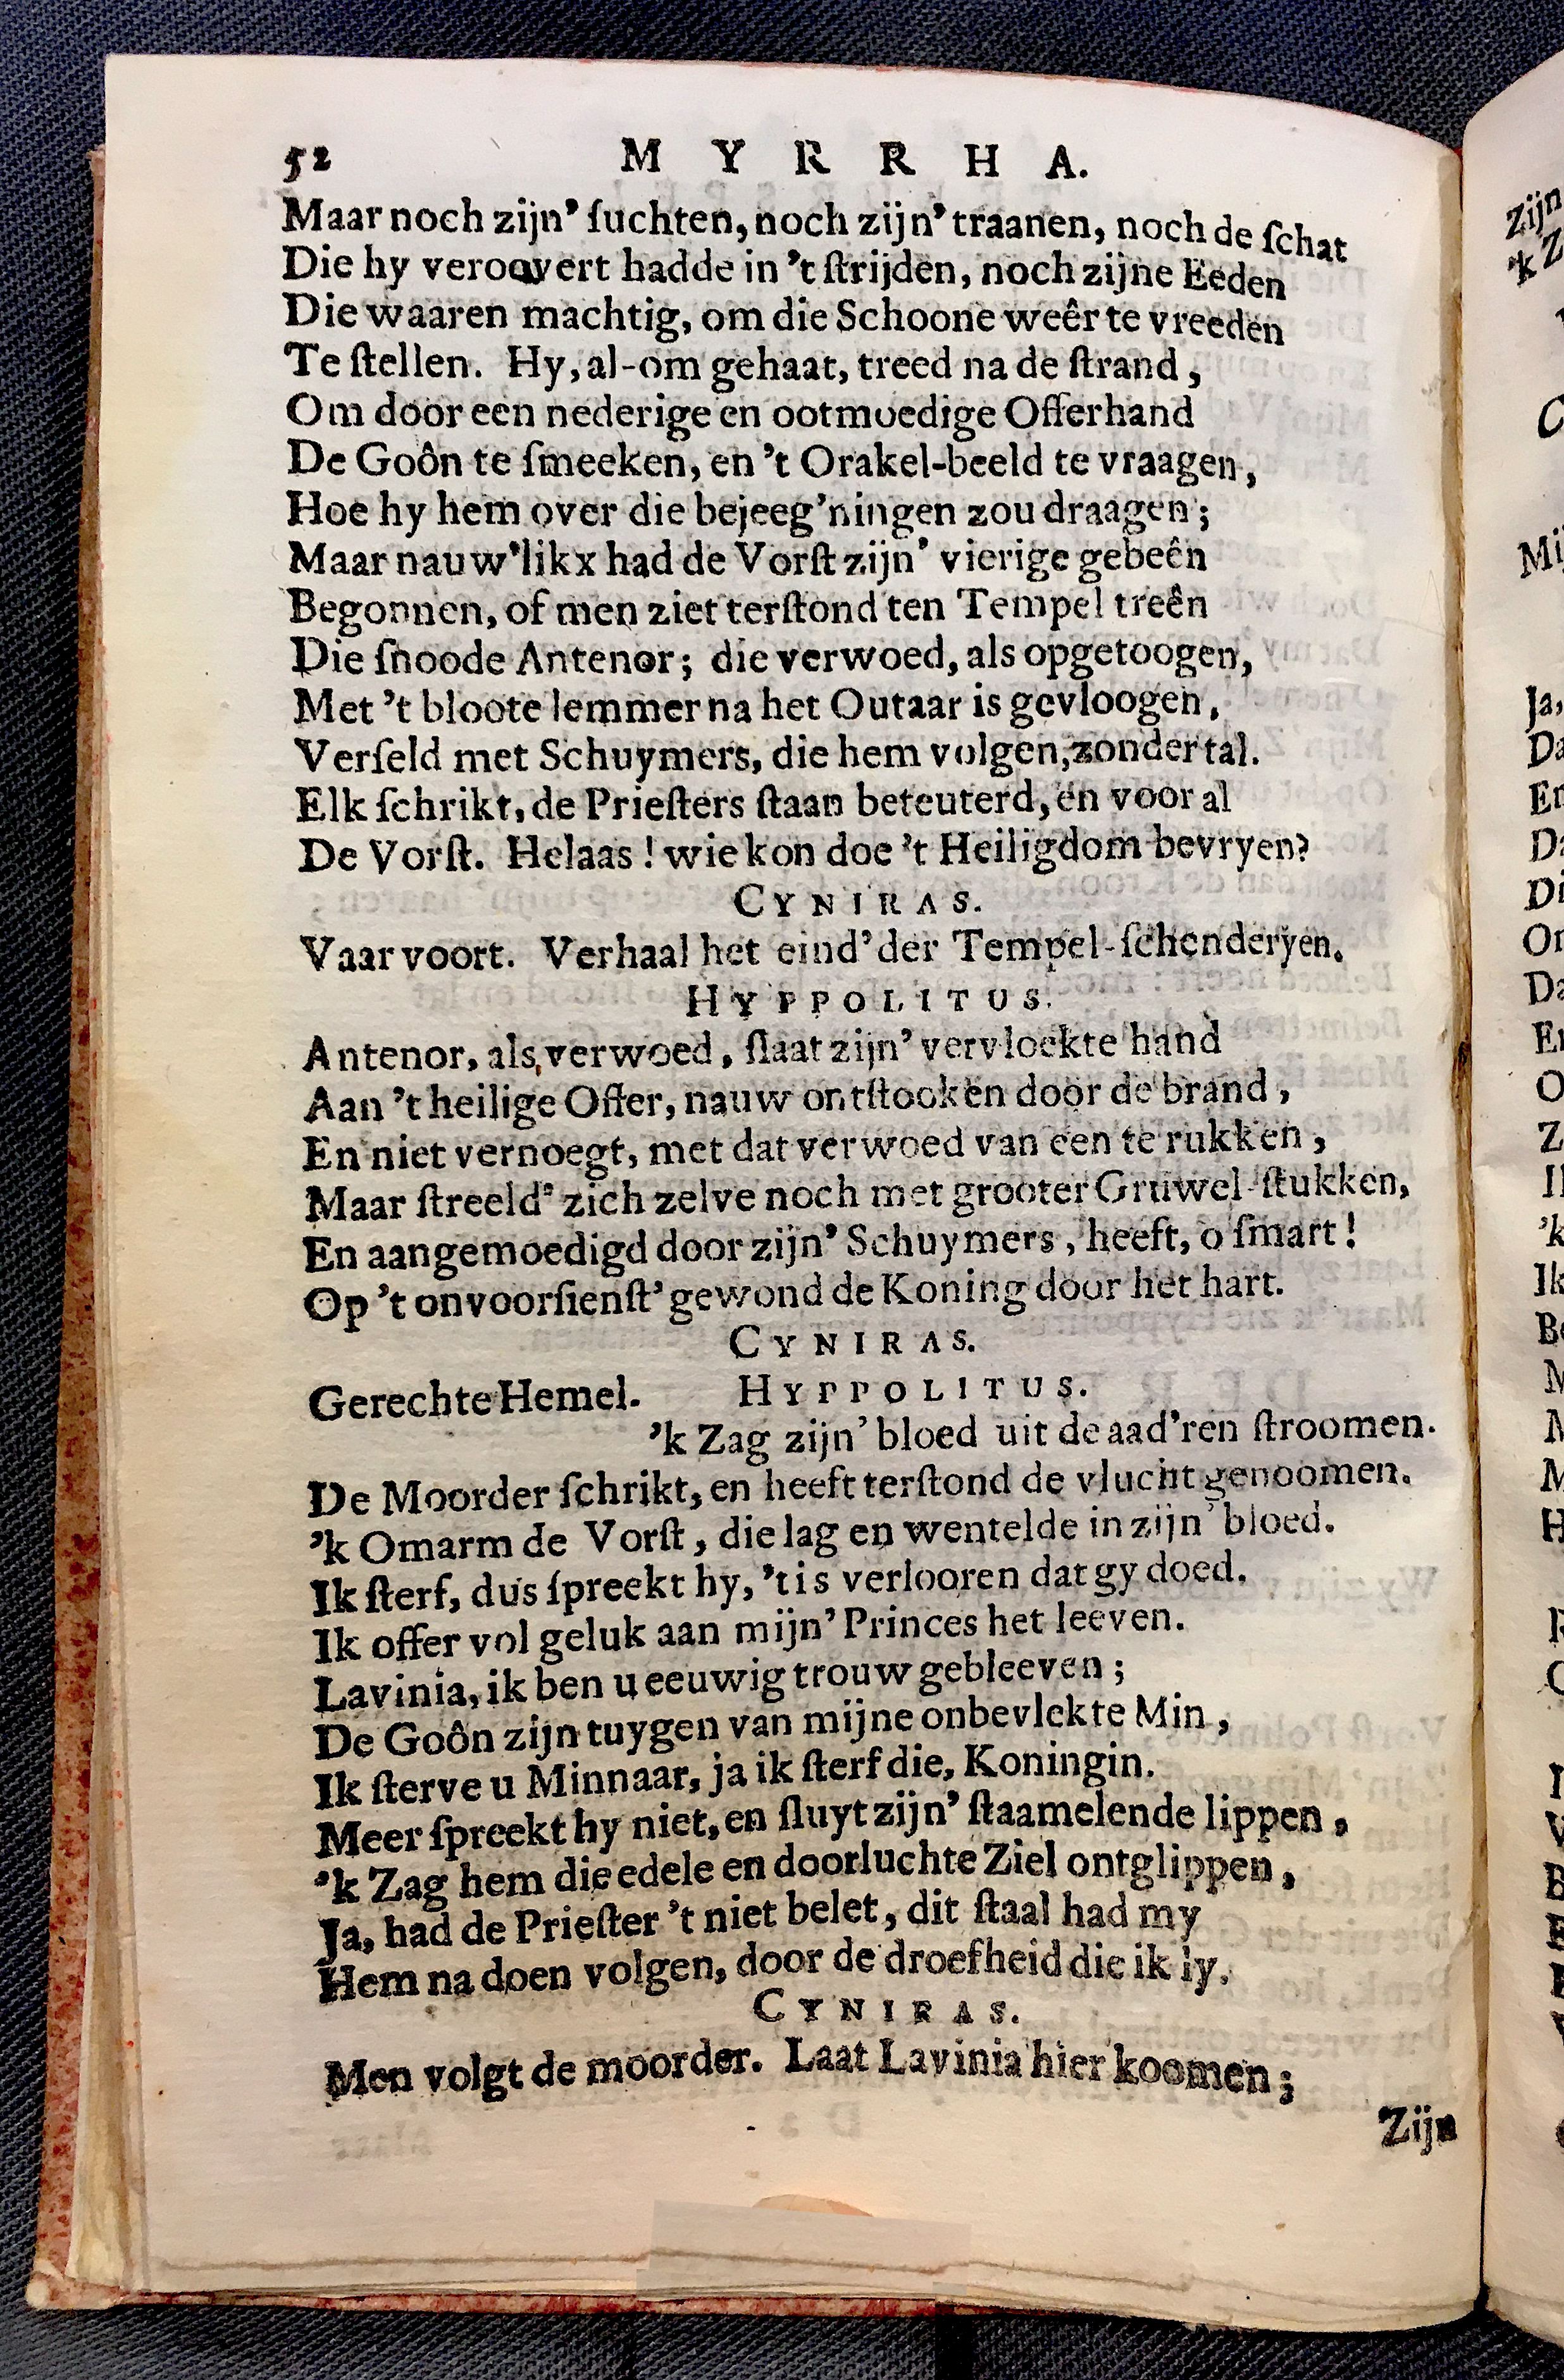 52 MYRRHA.
Maar noch zijn' ſuchten, noch zijn' traanen, noch de ſchat
Die hy veroovert hadde in 't ſtrijden, noch zijne Eeden
Die waaren machtig, om die Schoone weêr te vreeden
Te ſtellen. Hy, al-om gehaat, treed na de ſtrand,
Om door een nederige en ootmoedige Offerhand
De Goôn te ſmeeken, en 't Orakel-beeld te vraagen,
Hoe hy hem over die bejeeg'ningen zou draagen;
Maar nauw'likx had de Vorſt zijn' vierige gebeên
Begonnen, of men ziet terſtond ten Tempel treên
Die ſnoode Antenor; die verwoed, als opgetoogen,
Met 't bloote lemmer na het Outaar is gevloogen,
Verſeld met Schuymers, die hem volgen, zonder tal.
Elk ſchrikt, de Prieſters ſtaan beteuterd, en voor al
De Vorſt. Helaas! wie kon doe 't Heiligdom bevryen?
CYNIRAS.
Vaar voort. Verhaal het eind' der Tempel-ſchenderyen.
HYPPOLITUS.
Antenor, als verwoed, ſlaat zijn' vervloekte hand
Aan 't heilige Offer, nauw ontſtooken door de brand,
En niet vernoegt, met dat verwoed van een te rukken,
Maar ſtreeld' zich zelve noch met grooter Gruwel-ſtukken,
En aangemoedigd door zijn' Schuymers, heeft, o ſmart!
Op 't onvoorſienſt' gewond de Koning door het hart.
CYNIRAS.
Gerechte Hemel. HYPPOLITUS.
'k Zag zijn' bloed uit de aad'ren ſtroomen.
De Moorder ſchrikt, en heeft terſtond de vlucht genoomen.
'k Omarm de Vorſt, die lag en wentelde in zijn' bloed.
Ik ſterf, dus ſpreekt hy, 't is verlooren dat gy doed.
Ik offer vol geluk aan mijn' Princes het leeven.
Lavinia, ik ben u eeuwig trouw gebleeven;
De Goôn zijn tuygen van mijne onbevlekte Min,
Ik ſterve u Minnaar, ja ik ſterf die, Koningin.
Meer ſpreekt hy niet, en ſluyt zijn' ſtaamelende lippen,
'k Zag hem die edele en doorluchte Ziel ontglippen,
Ja, had de Prieſter 't niet belet, dit ſtaal had my
Hem na doen volgen, door de droefheid die ik ly.
CYNIRAS.
Men volgt de moorder. Laat Lavinia hier koomen;
Zijn